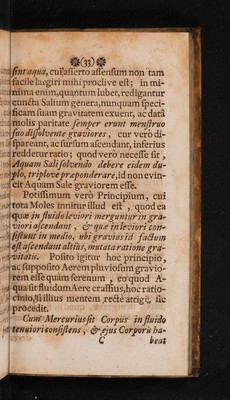 (33)
sint aqua, cuj' asserto assensum non tam
facile largiri mihi proclive est; in mi-
nima enim, quantum luber, redigantur
cuncta Salium genera, nunquam speci-
ficam suam gravitatem exuent, ac datâ
molis paritate semper erunt menstruo
suo dissolvente graviores, cur verò di-
spareant, ac sursum ascendant, inferius
reddetur ratio; quod verò necesse sit,
Aquam Sali solvendo debere eidem du-
plo, triplove præponderare, id non evin-
cit Aquam Sale graviorem esse.
Potissimum verò Principium, cui
tota Moles innitur illud est, quod ea
quæ in fluido leviori merguntur in gra-
viori ascendant, & quæ in leviori con-
sistunt in medio, ubi gravius id factum
est ascendant altius, mutata ratione gra-
vitatis. Posito igitur hoc principio,
ac supposito Aerem pluviosum gravio-
rem esse quàm serenum, eo quod A-
qua sit fluidum Aere crassius, hoc ratio-
cinio, si illius mentem rectè attrigi, sic
procedit.
Cum Mercurius sit Corpus in fluido
tenuiori consistens, & ejus Corporis ha-
C
beat